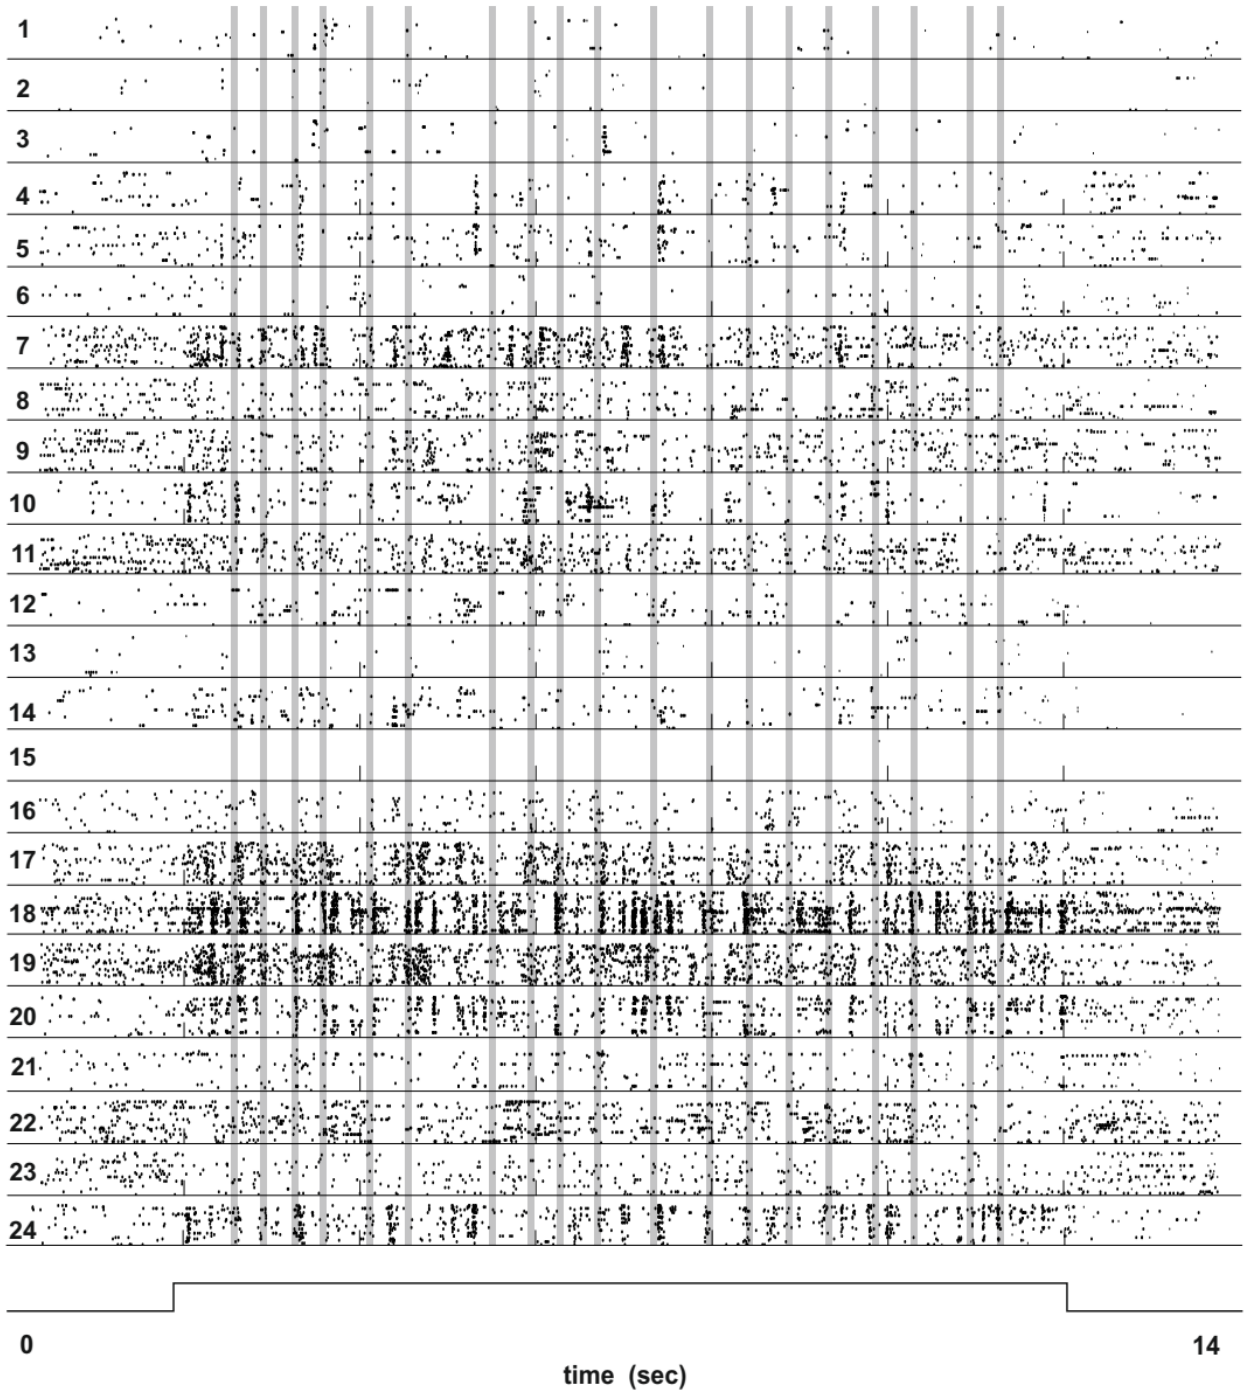 1
2
3
4
5
6
7
8
9
10
11
12
13
14
15
16
17
18
19
20
21
22
23
24
0 14
time (sec)